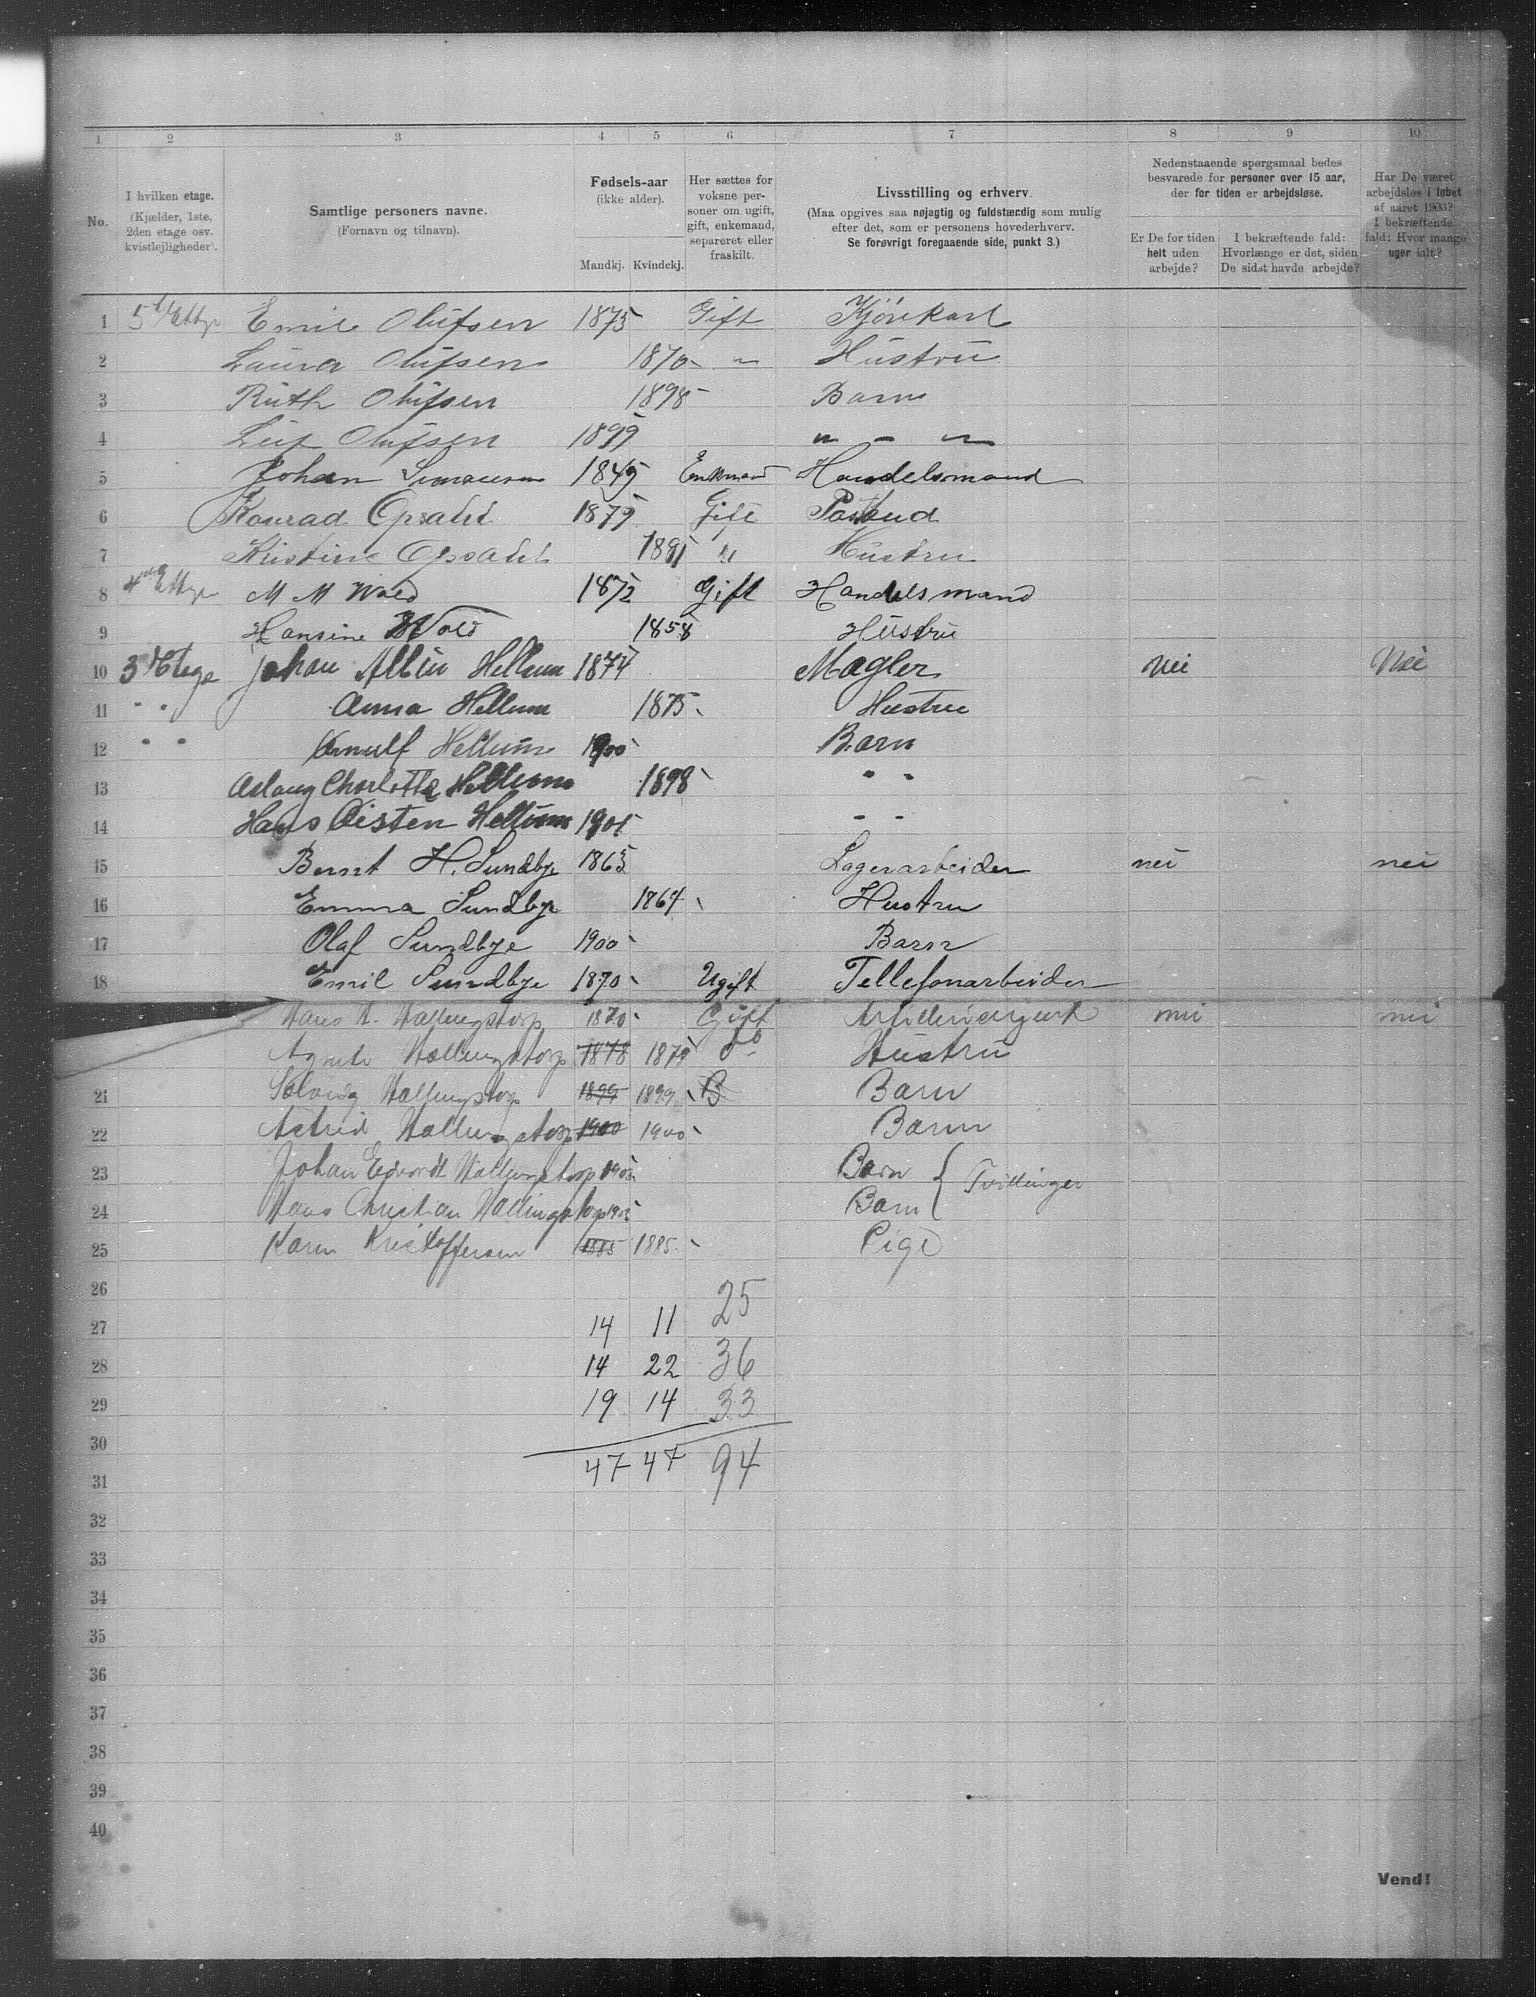 1 2 3 4 5 6 7 8 9 10
No.
I hvilken etage.
(Kjælder, 1ste, 2den etage osv. kvistlejligheder).
Samtlige personers navne.
(Fornavn og tilnavn).
Fødsels-aar
(ikke alder).
Mandkj. Kvindekj.
Her sættes for voksne personer om ugift, gift, enkemand, separeret eller fraskilt.
Livsstilling og erhverv.
(Maa opgives saa nøjagtig og fuldstændig som mulig
efter det, som er personens hovederhverv.
Se forøvrigt foregaaende side, punkt 3.)
Nedenstaaende spørgsmaal bedes
besvarede for personer over 15 aar,
der for tiden er arbejdsløse.
Er De for tiden helt uden arbejde?
I bekræftende fald: Hvorlænge er det, siden De sidst havde arbejde?
Har De været arbejdsløs i løbet af aaret 1903? I bekræftende fald: Hvor mange uger ialt?
1 Emil Olufsen 1875 Gift Kjørekarl
2 Laura Olufsen 1870 " Hustru
3 Ruth Olufsen 1898 Barn
4 Leif Olufsen 1899 " - "
5 Johan Simonsen 1849 Enkmand Handelsmand
6 Konrad Opsahl 1879 Gift Postbud
7 Kristine Opsahl 1881 " Hustru
8 4de Etage M M Wold 1872 Gift Handelsmand
9 Hansine Wold 1858 Hustru
10 3d Etage Johan Albin Hellum 1874 Mægler Nei Nei
11 " " Anna Hellum 1875 Hustru
12 " " Arnulf Hellum 1900 Barn
13 Aslaug Charlotte Hellum 1898 " "
14 Hans Øisten Hellum 1901 " "
15 Bernt H. Sundbye 1865 Lagerarbeider nei nei
16 Emma Sundbye 1864 Hustru
17 Olaf Sundbye 1900 Barn
18 Emil Sundbye 1870 Ugift Tellefonarbeider
Hans H. Hallingstorp 1870 Gift nei nei
Agnete Hallingstorp 1878 1878 Do Hustru
21 Solveig Hallingstorp 1899 1899 B Barn
22 Astrid Hallingstorp 1900 1900 Barn
23 Johan Edvardt Hallingstorp 1903 Barn { Tvillinger
24 Hans Christian Hallingstorp 1903 Barn
25 Karen Kristoffersen 1885 1885 Pige
26 25
27 14 11
28 14 22 36
29 19 14 33
30
31 47 47 94
32
33
34
35
36
37
38
39
40
Vend!